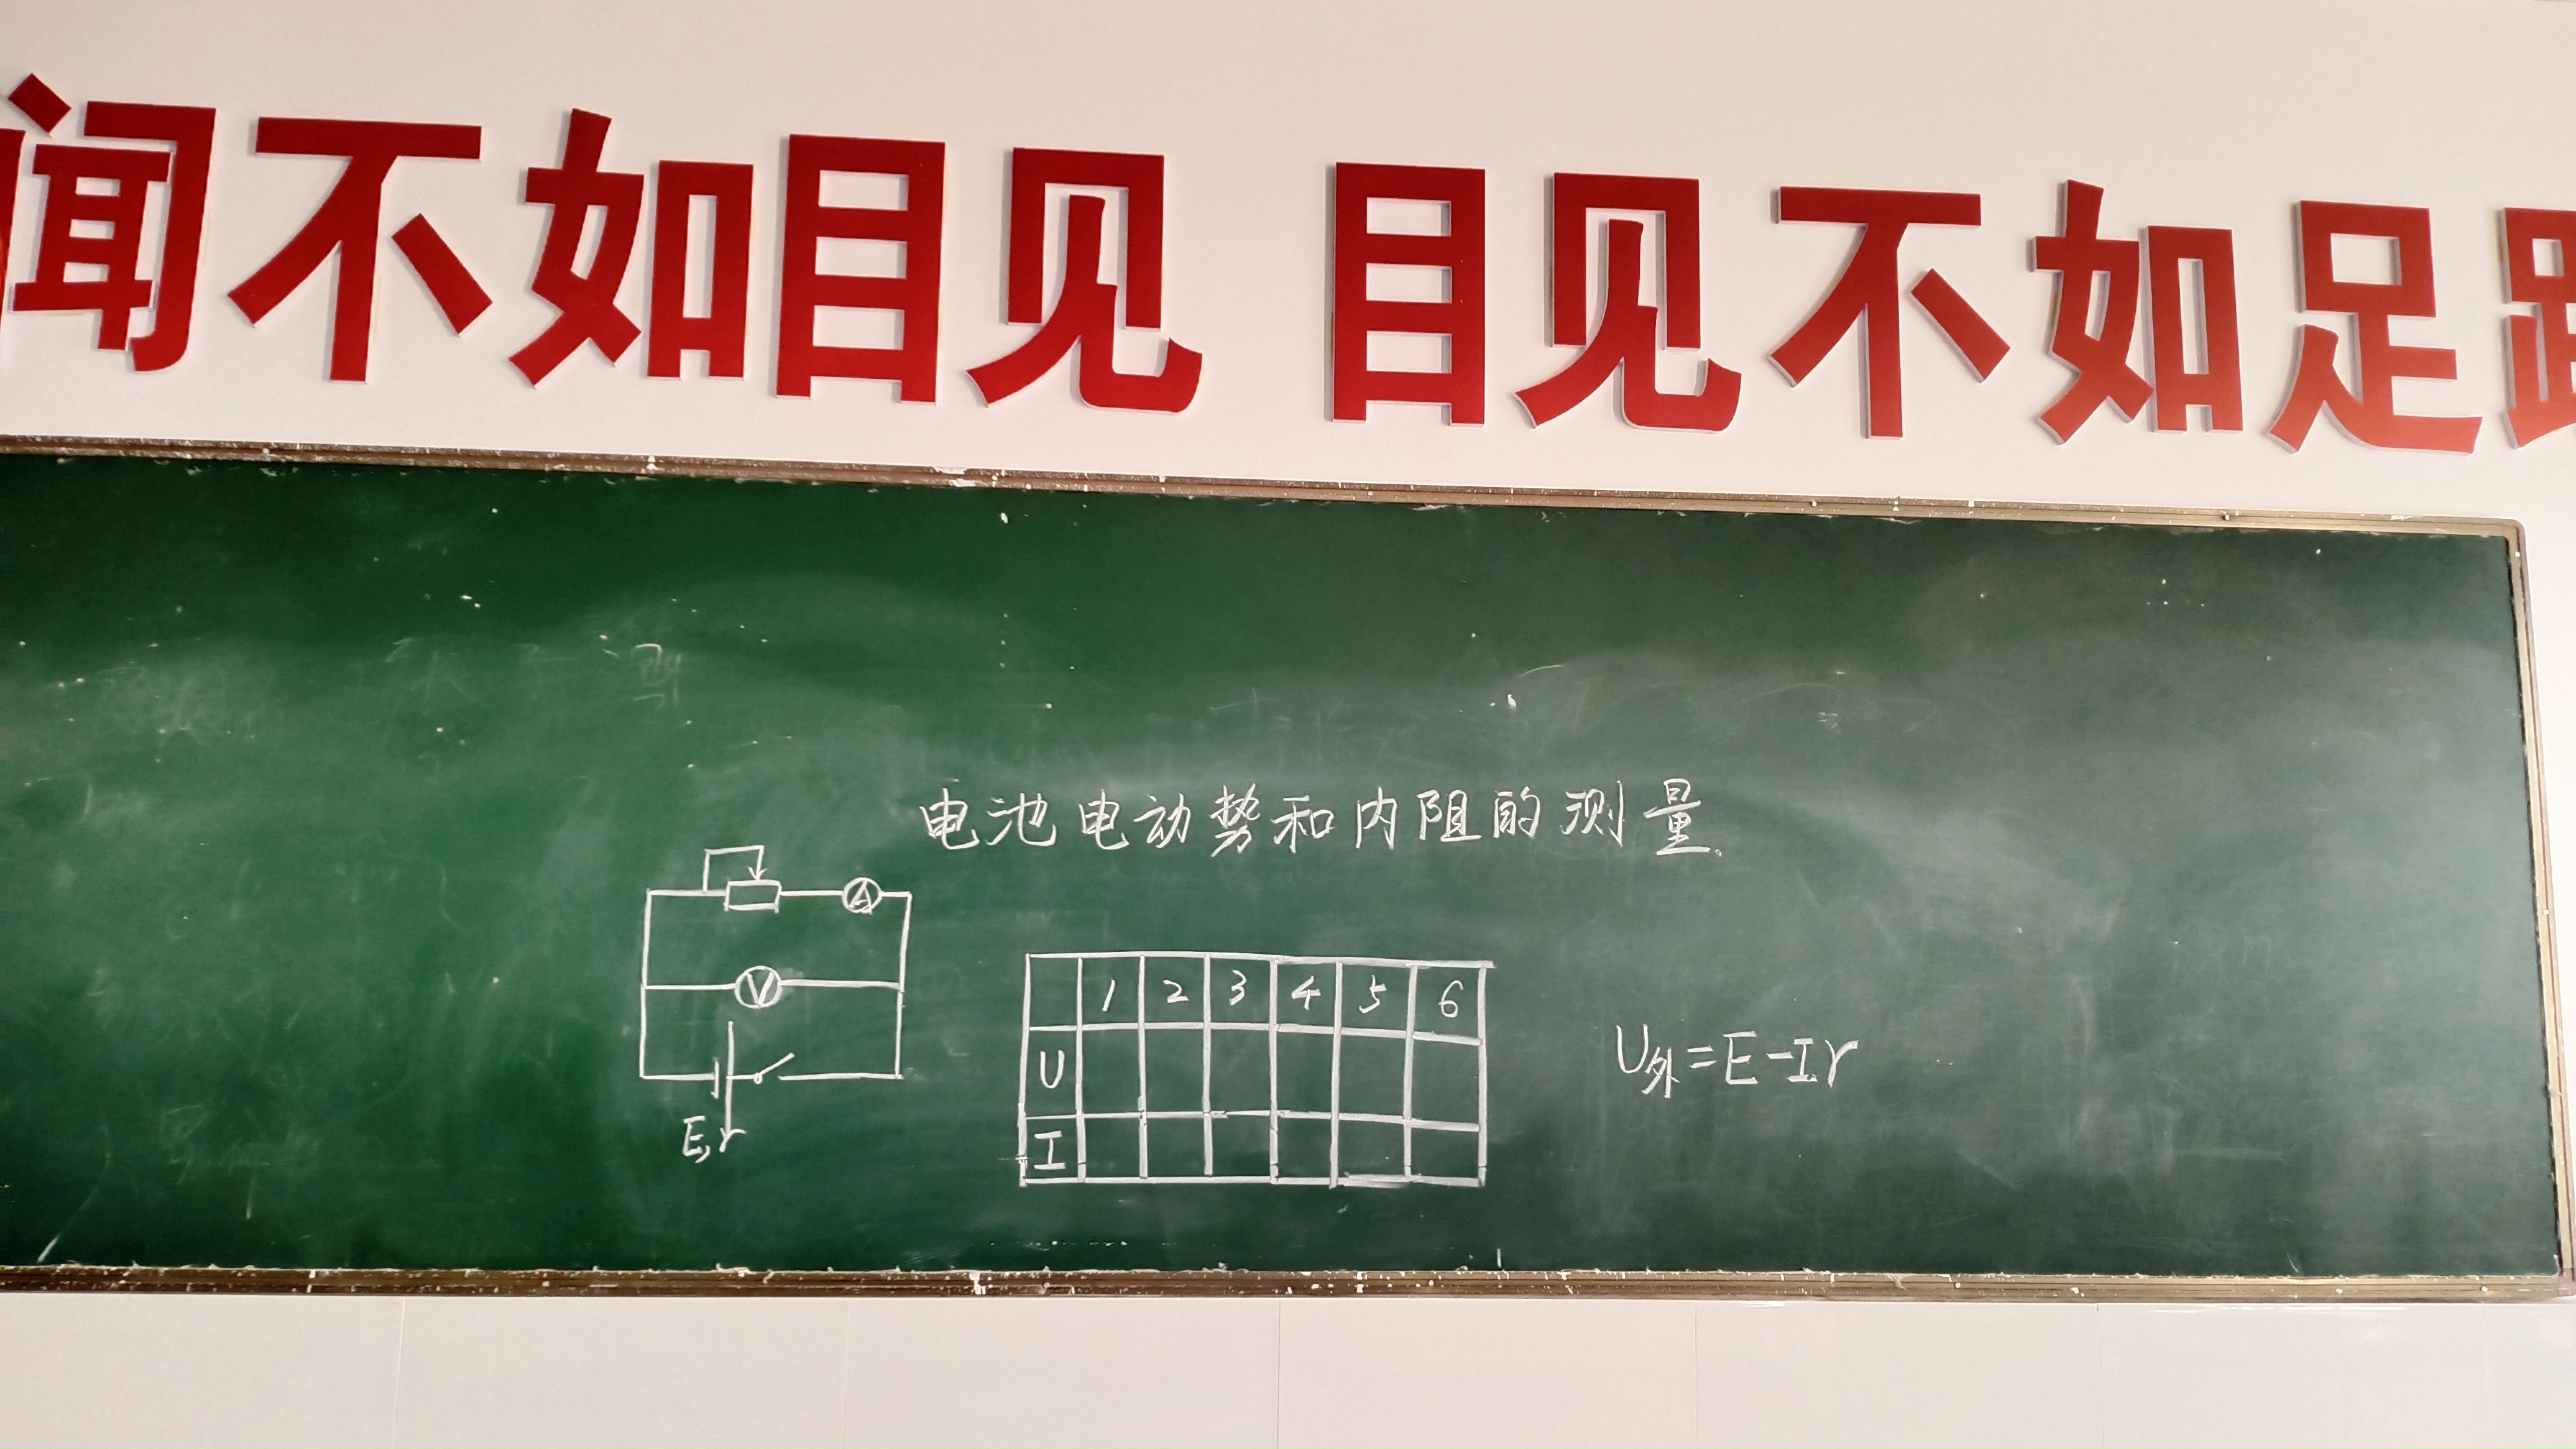 闻不如目见 目见不如足
电池电动势和内阻的测量.
A
V
E,r
1 2 3 4 5 6
U
I
U外=E-Ir